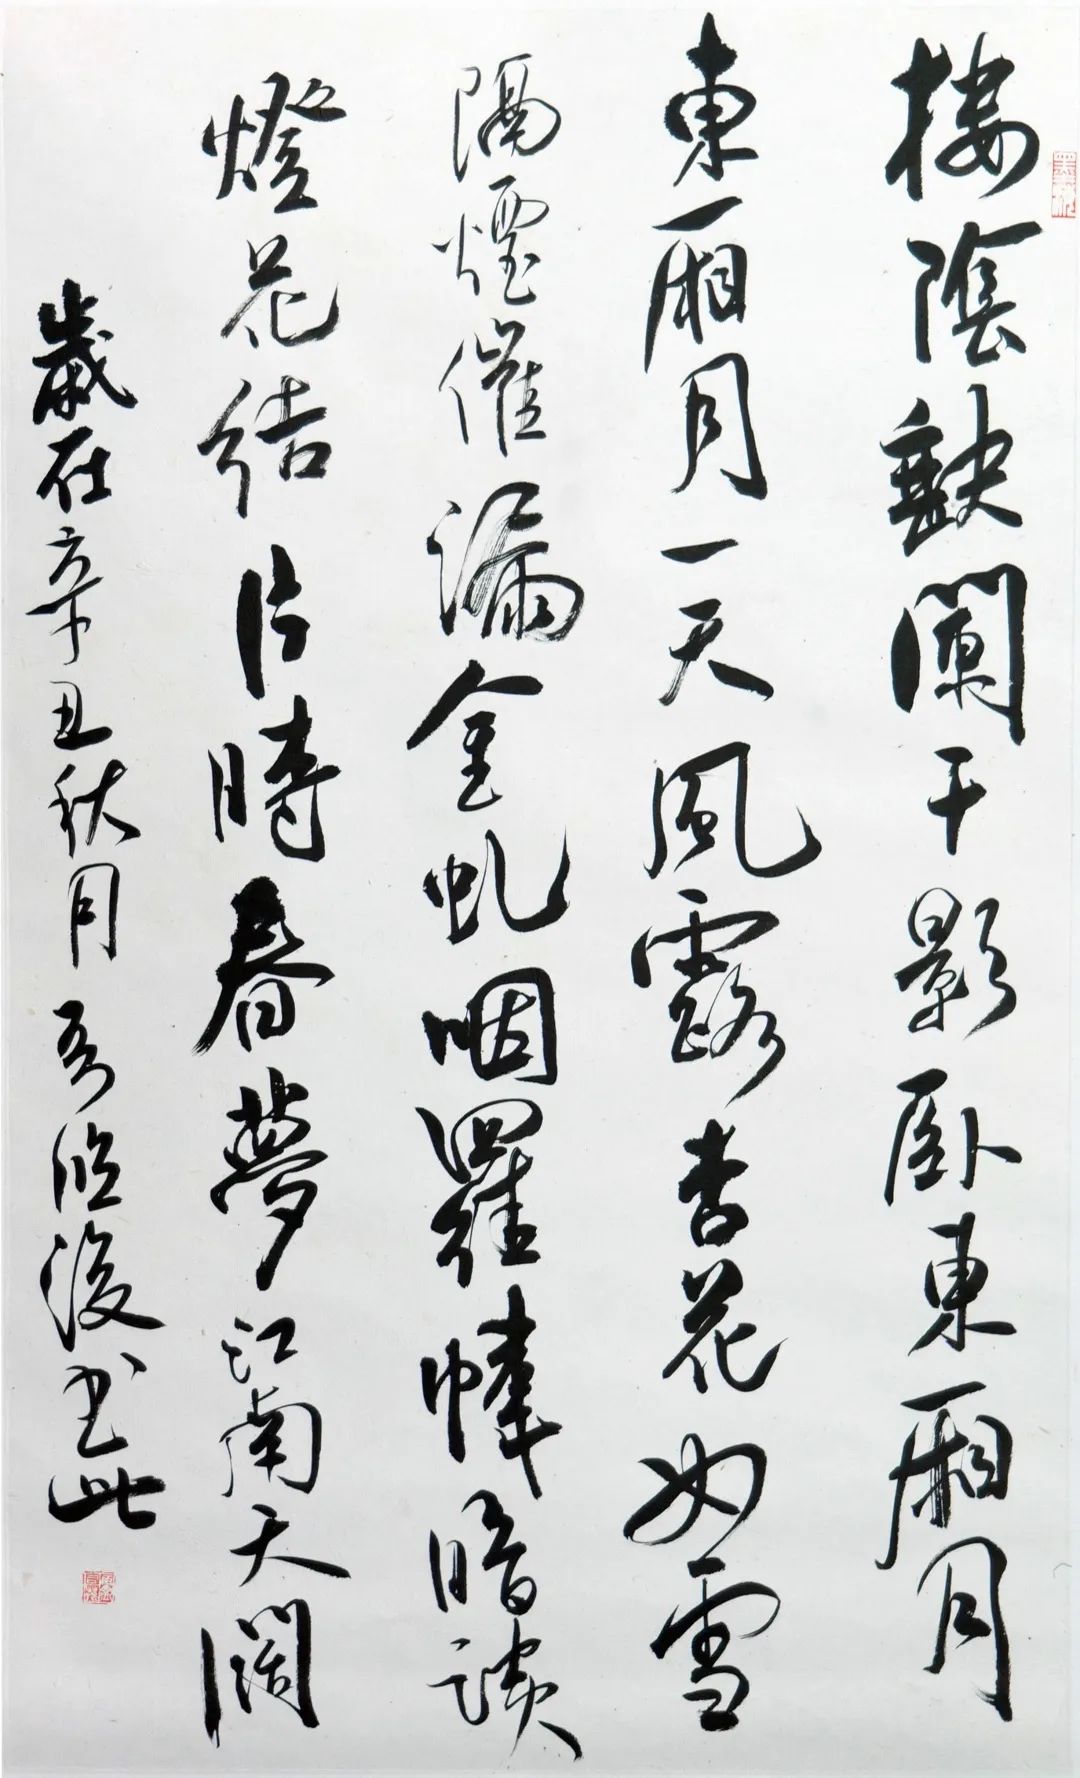 樓陰缺闌干影卧東厢月
東厢月一天風露杏花如雪
隔煙催漏金虬咽羅幃暗淡
燈花結片時春夢江南天闊
歲在辛丑秋月 书此